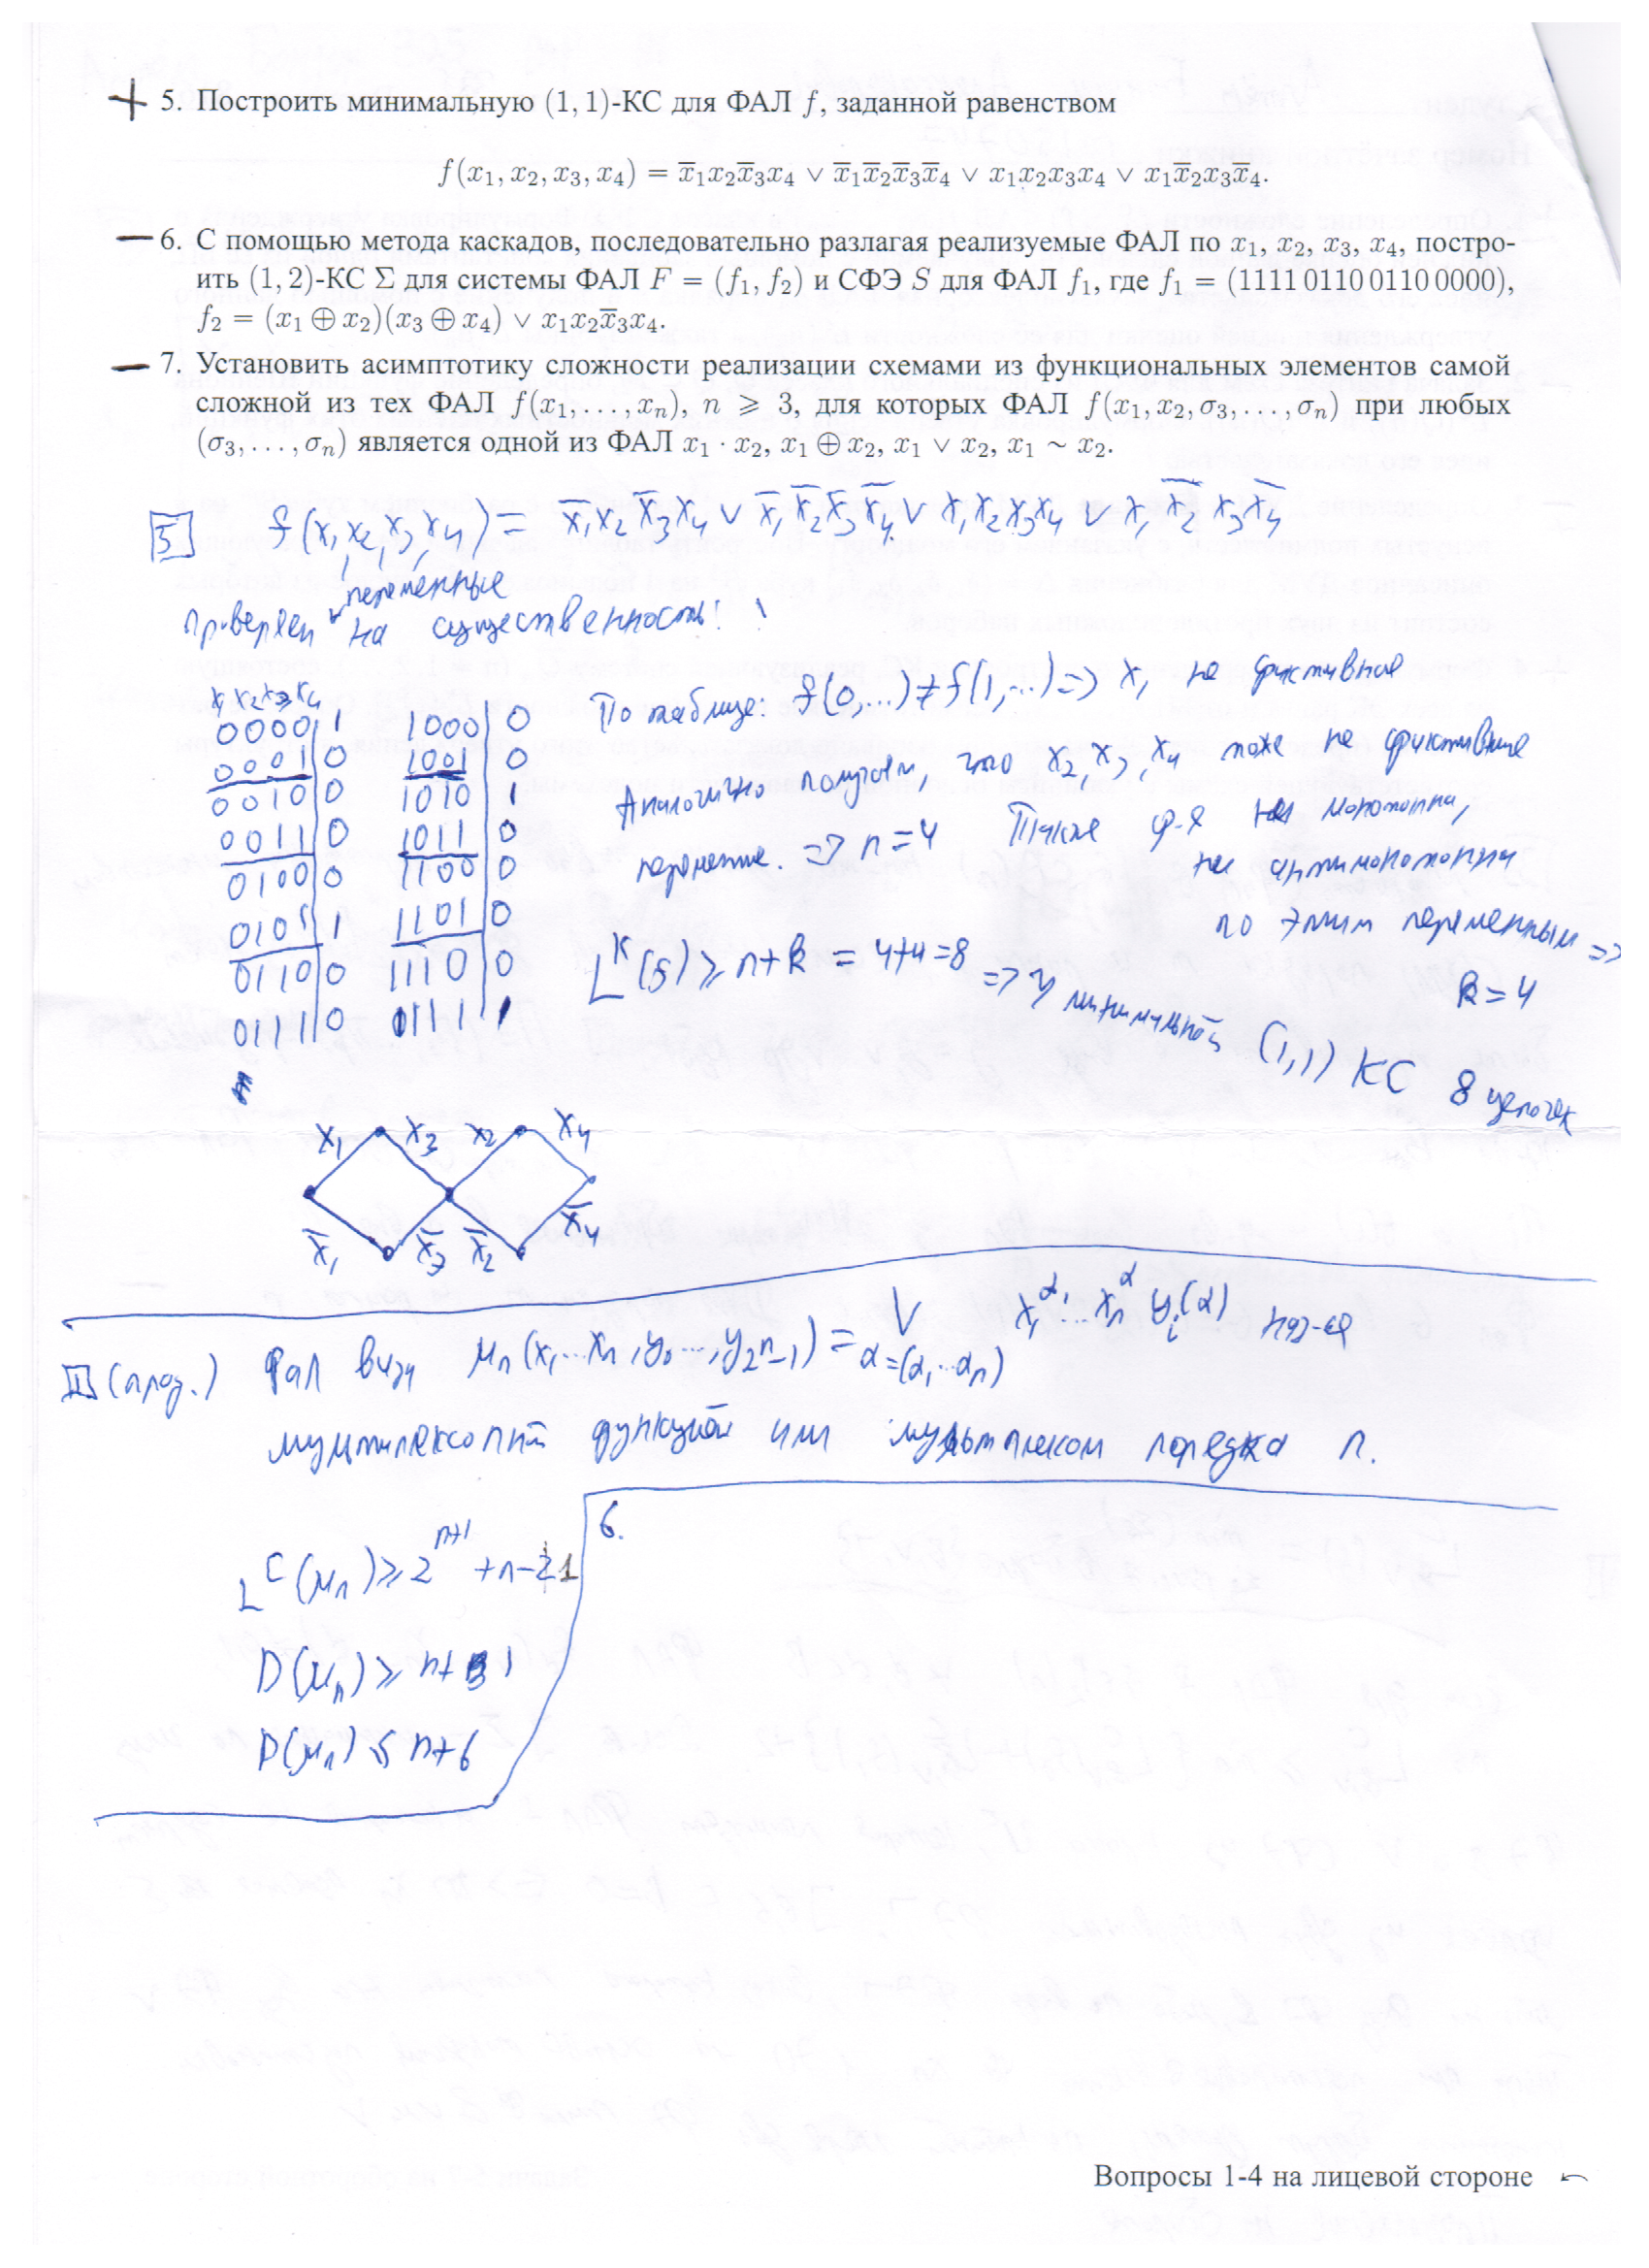 + 5. Построить минимальную (1, 1)-КС для ФАЛ f, заданной равенством
f(x₁, x₂, x₃, x₄) = x̅₁x₂x̅₃x₄ ∨ x̅₁x̅₂x̅₃x̅₄ ∨ x₁x₂x₃x₄ ∨ x₁x̅₂x₃x̅₄.
— 6. С помощью метода каскадов, последовательно разлагая реализуемые ФАЛ по x₁, x₂, x₃, x₄, постро-
ить (1, 2)-КС Σ для системы ФАЛ F = (f₁, f₂) и СФЭ S для ФАЛ f₁, где f₁ = (1111 0110 0110 0000),
f₂ = (x₁ ⊕ x₂)(x₃ ⊕ x₄) ∨ x₁x₂x̅₃x₄.
— 7. Установить асимптотику сложности реализации схемами из функциональных элементов самой
сложной из тех ФАЛ f(x₁, . . . , xₙ), n ⩾ 3, для которых ФАЛ f(x₁, x₂, σ₃, . . . , σₙ) при любых
(σ₃, . . . , σₙ) является одной из ФАЛ x₁ · x₂, x₁ ⊕ x₂, x₁ ∨ x₂, x₁ ∼ x₂.
5 f(x₁,x₂,x₃,x₄) = x̅₁x₂x̅₃x₄ ∨ x̅₁x̅₂x̅₃x̅₄ ∨ x₁x₂x₃x₄ ∨ x₁x̅₂x₃x̅₄
переменные
Проверяем на существенность:
x₁x₂x₃x₄
0000|1 1000|0
0001|0 1001|0
0010|0 1010|1
0011|0 1011|0
0100|0 1100|0
0101|1 1101|0
0110|0 1110|0
0111|0 1111|1
По таблице: f(0,...)≠f(1,...) => x₁ не фиктивная
Аналогично получаем, что x₂,x₃,x₄ тоже не фиктивные
переменные. => n=4 Также ф-я не монотонна,
не антимонотонна
по этим переменным =>
k=4
Lᴷ(f) ⩾ n+k = 4+4=8 => у минимальной (1,1) КС 8
x₁ x₃ x₂ x₄
x̅₁ x̅₃ x̅₂ x̅₄
II (прод.) Фал вида μₙ(x₁...xₙ,y₀...,y₂ⁿ₋₁) = ∨ α=(α₁...αₙ) x₁^α¹...xₙ^α yᵢ(α) наз-ся
мультиплексорной функцией или порядка n.
6.
Lᶜ(μₙ) ⩾ 2ⁿ⁺¹ + n-1
D(μₙ) ⩾ n+1
D(μₙ) ⩽ n+6
Вопросы 1-4 на лицевой стороне